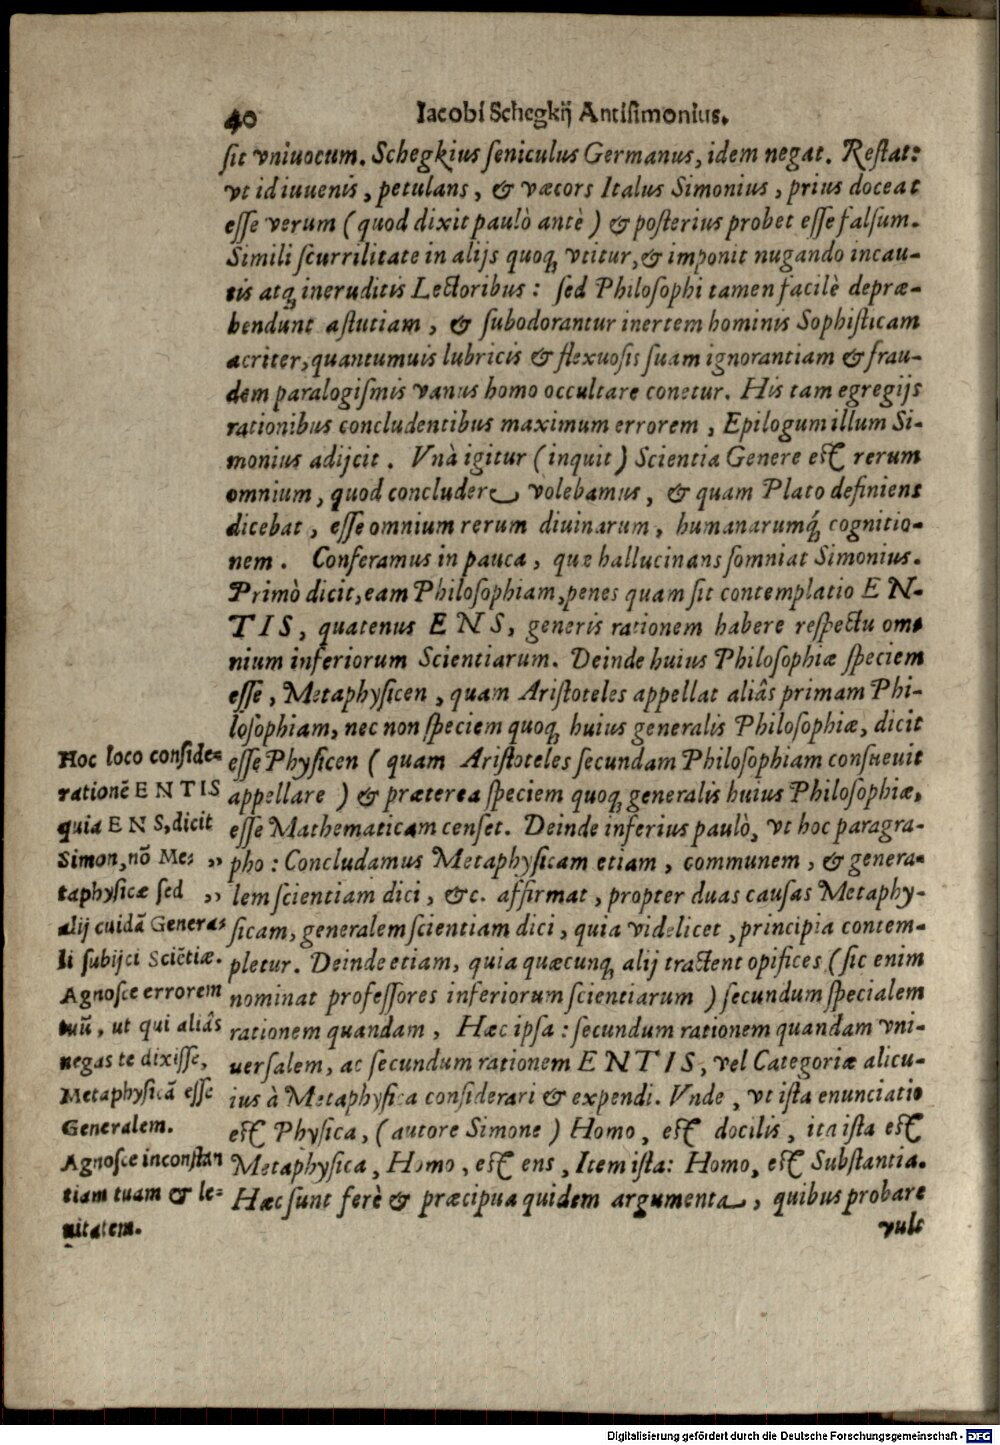 40 Iacobi Schegkij Antisimonius.
sit vniuocum. Schegkius seniculus Germanus, idem negat. Restat:
vt id iuuenis, petulans, & væcors Italus Simonius, prius doceat
esse verum (quod dixit paulò antè) & posterius probet esse falsum.
Simili scurrilitate in alijs quoq; vtitur, & imponit nugando incau-
tis atq; ineruditis Lectoribus: sed Philosophi tamen facilè depræ-
hendunt astutiam, & subodorantur inertem hominis Sophisticam
acriter, quantumuis lubricis & flexuosis suam ignorantiam & frau-
dem paralogismis vanus homo occultare conetur. His tam egregijs
rationibus concludentibus maximum errorem, Epilogum illum Si-
monius adijcit. Vnà igitur (inquit) Scientia Genere est rerum
omnium, quod concludere volebamus, & quam Plato definiens
dicebat, esse omnium rerum diuinarum, humanarumq́; cognitio-
nem. Conferamus in pauca, quæ hallucinans somniat Simonius.
Primò dicit, eam Philosophiam, penes quam sit contemplatio EN-
TIS, quatenus ENS, generis rationem habere respectu om-
nium inferiorum Scientiarum. Deinde huius Philosophiæ speciem
esse, Metaphysicen, quam Aristoteles appellat aliâs primam Phi-
losophiam, nec non speciem quoq; huius generalis Philosophiæ, dicit
esse Physicen (quam Aristoteles secundam Philosophiam consueuit
appellare) & præterea speciem quoq; generalis huius Philosophiæ,
esse Mathematicam censet. Deinde inferius paulò, vt hoc paragra-
pho: Concludamus Metaphysicam etiam, communem, & genera-
lem scientiam dici, &c. affirmat, propter duas causas Metaphy-
sicam, generalem scientiam dici, quia videlicet, principia contem-
pletur. Deinde etiam, quia quæcunq; alij tractent opifices (sic enim
nominat professores inferiorum scientiarum) secundum specialem
rationem quandam, Hæc ipsa: secundum rationem quandam vni-
uersalem, ac secundum rationem ENTIS, vel Categoriæ alicu-
ius à Metaphysica considerari & expendi. Vnde, vt ista enunciatio
est Physica, (autore Simone) Homo, est docilis, ita ista est
Metaphysica, Homo, est ens, Item ista: Homo, est Substantia.
Hæc sunt ferè & præcipua quidem argumenta, quibus probare
vult
Hoc loco conside-
rationē ENTIS
quia ENS, dicit
Simon, nō Me- „
taphysicæ sed „
alij cuidā Genera-
li subijci Sciētiæ.
Agnosce errorem
tuū, ut qui aliâs
negas te dixisse,
Metaphysicā esse
Generalem.
Agnosce inconstan
tiam tuam & le-
uitatem.
Digitalisierung gefördert durch die Deutsche Forschungsgemeinschaft - DFG